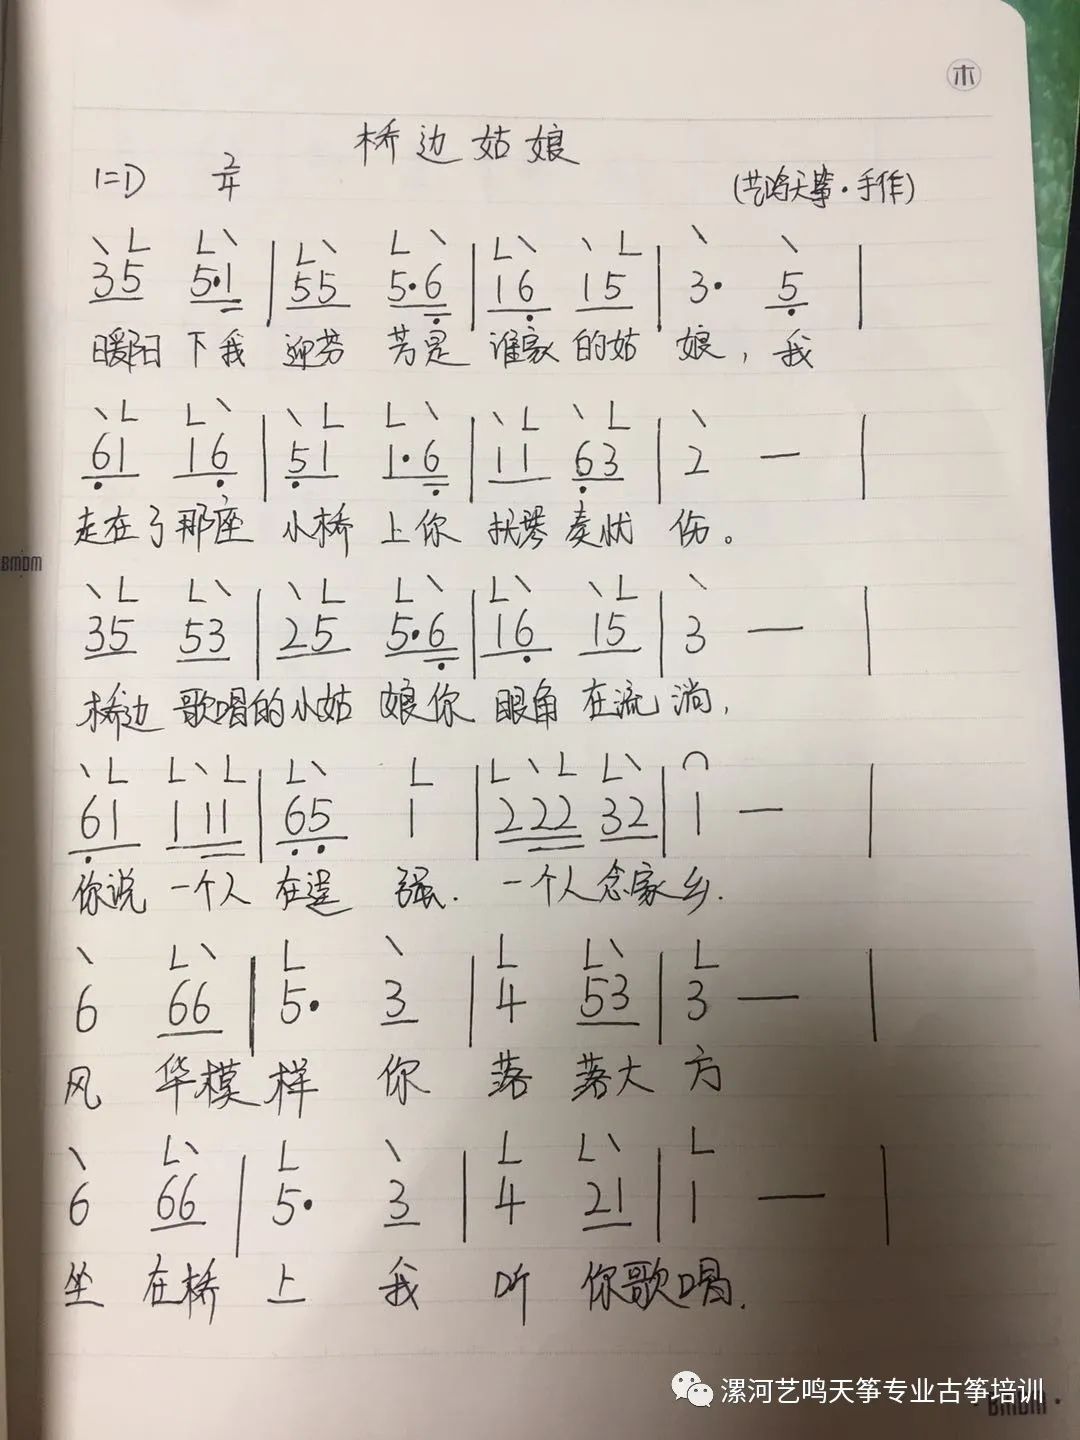 木
桥边姑娘
1=D 2/4 (艺鸣天筝·手作)
35 5·1 | 55 5·6 | 16 15 | 3· 5 |
暖阳 下我 迎芬 芳是 谁家 的姑 娘，我
61 16 | 51 1·6 | 11 63 | 2 — |
走在了那座 小桥 上你 抚琴奏忧 伤。
35 53 | 25 5·6 | 16 15 | 3 — |
桥边 歌唱的小姑 娘你 眼角 在流 淌，
61 111 | 65 1 | 222 32 | 1 — |
你说 一个人 在逞 强. 一个人念家乡.
6 66 | 5· 3 | 4 53 | 3 — |
风 华模 样 你 落 落大 方
6 66 | 5· 3 | 4 21 | 1 — |
坐 在桥 上 我 听 你歌唱.
BMDM
漯河艺鸣天筝专业古筝培训
BMDM